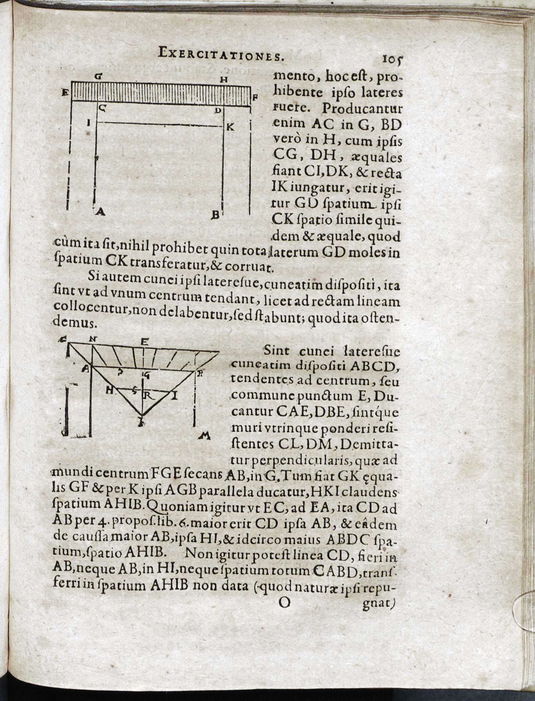 EXERCITATIONES. 105
mento, hoc est, pro-
hibente ipso lateres
ruere. Producantur
enim AC in G, BD
verò in H, cum ipsis
CG, DH, æquales
fiant CI, DK, & recta
IK iungatur, erit igi-
tur GD spatium ipsi
CK spatio simile qui-
dem & æquale, quod
cùm ita sit, nihil prohibet quin tota laterum GD moles in
spatium CK transferatur, & corruat.
Si autem cunei ipsi lateresue, cuneatim dispositi, ita
sint vt ad vnum centrum tendant, licet ad rectam lineam
collocentur, non delabentur, sed stabunt; quod ita osten-
demus.
Sint cunei lateresue
cuneatim dispositi ABCD,
tendentes ad centrum, seu
commune punctum E, Du-
cantur CAE, DBE, sintque
muri vtrinque ponderi resi-
stentes CL, DM, Demitta-
tur perpendicularis, quæ ad
mundi centrum FGE secans AB, in G. Tum fiat GK ęqua-
lis GF & per K ipsi AGB parallela ducatur, HKI claudens
spatium AHIB. Quoniam igitur vt EC, ad EA, ita CD ad
AB per 4. propos. lib. 6. maior erit CD ipsa AB, & eadem
de causa maior AB, ipsa HI, & idcirco maius ABDC spa-
tium, spatio AHIB. Non igitur potest linea CD, fieri in
AB, neque AB, in HI, neque spatium totum CABD, trans-
ferri in spatium AHIB non data (quod naturæ ipsi repu-
O gnat)
G H
E F
C D
I K
A B
N E
A G F
H R I
M